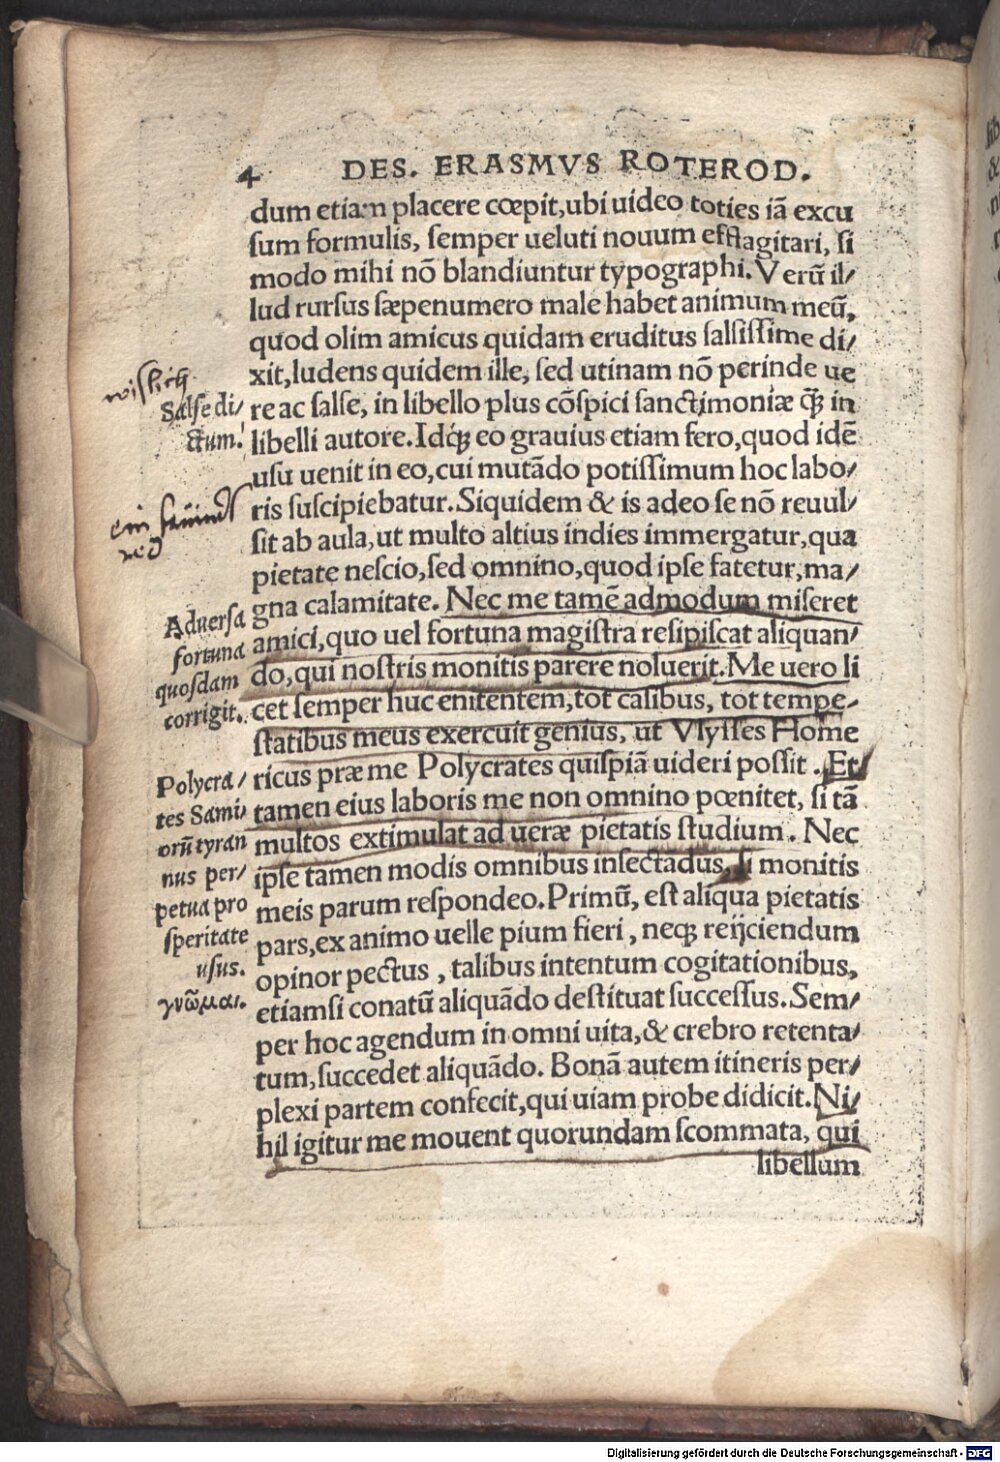 4 DES. ERASMVS ROTEROD.
dum etiam placere cœpit, ubi uideo toties iã excu
ſum formulis, ſemper ueluti nouum efflagitari, ſi
modo mihi nõ blandiuntur typographi. Verũ il/
lud rurſus ſæpenumero male habet animum meũ,
quod olim amicus quidam eruditus ſalſiſſime di/
xit, ludens quidem ille, ſed utinam nõ perinde ue
re ac ſalſe, in libello plus cõſpici ſanctimoniæ q̃ꝫ in
libelli autore. Idq́ꝫ eo grauius etiam fero, quod idẽ
uſu uenit in eo, cui mutãdo potiſſimum hoc labo/
ris ſuſcipiebatur. Siquidem & is adeo ſe nõ reuul/
ſit ab aula, ut multo altius indies immergatur, qua
pietate neſcio, ſed omnino, quod ipſe fatetur, ma/
gna calamitate. Nec me tamẽ admodum miſeret
amici, quo uel fortuna magiſtra reſipiſcat aliquan/
do, qui noſtris monitis parere noluerit. Me uero li
cet ſemper huc enitentem, tot caſibus, tot tempe/
ſtatibus meus exercuit genius, ut Vlyſſes Home
ricus præ me Polycrates quiſpiã uideri poſſit. Et
tamen eius laboris me non omnino pœnitet, ſi tã
multos extimulat ad ueræ pietatis ſtudium. Nec
ipſe tamen modis omnibus inſectãdus, ſi monitis
meis parum reſpondeo. Primũ, eſt aliqua pietatis
pars, ex animo uelle pium fieri, neqꝫ reijciendum
opinor pectus, talibus intentum cogitationibus,
etiamſi conatũ aliquãdo deſtituat ſucceſſus. Sem/
per hoc agendum in omni uita, & crebro retenta/
tum, ſuccedet aliquãdo. Bonã autem itineris per/
plexi partem confecit, qui uiam probe didicit. Ni/
hil igitur me mouent quorundam ſcommata, qui
libellum
Salſe di/
ctum.
Aduerſa
fortuna
quoſdam
corrigit.
Polycra/
tes Sami/
orũ tyran
nus per/
petua pro
ſperitate
uſus.
γνῶμαι.
Digitalisierung gefördert durch die Deutsche Forschungsgemeinschaft - DFG